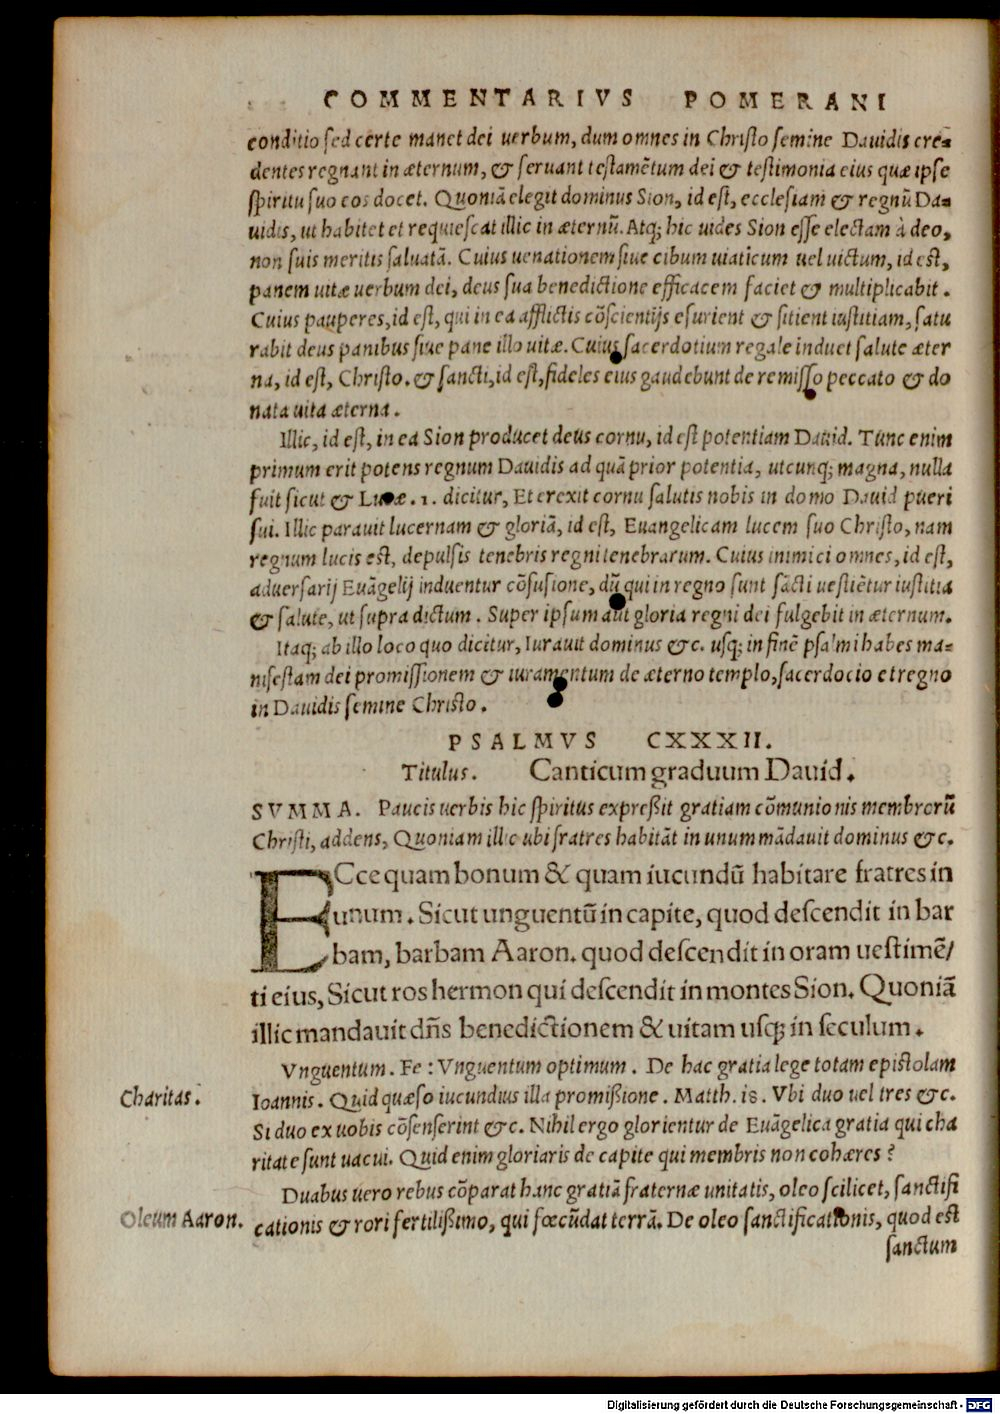 COMMENTARIVS POMERANI
conditio sed certe manet dei uerbum, dum omnes in Christo semine Dauidis cre=
dentes regnant in æternum, & seruant testamẽtum dei & testimonia eius quæ ipse
spiritu suo eos docet. Quoniã elegit dominus Sion, id est, ecclesiam & regnũ Da=
uidis, ut habitet et requiescat illic in æternũ. Atq; hic uides Sion esse electam à deo,
non suis meritis saluatã. Cuius uenationem siue cibum uiaticum uel uictum, id est,
panem uitæ uerbum dei, deus sua benedictione efficacem faciet & multiplicabit.
Cuius pauperes, id est, qui in ea afflictis cõscientijs esurient & sitient iustitiam, satu
rabit deus panibus siue pane illo uitæ. Cuius sacerdotium regale induet salute æter
na, id est, Christo. & sancti, id est, fideles eius gaudebunt de remisso peccato & do
nata uita æterna.
Illic, id est, in ea Sion producet deus cornu, id est potentiam Dauid. Tunc enim
primum erit potens regnum Dauidis ad quã prior potentia, utcunq; magna, nulla
fuit sicut & Lucæ. 1. dicitur, Et erexit cornu salutis nobis in domo Dauid pueri
sui. Illic parauit lucernam & gloriã, id est, Euangelicam lucem suo Christo, nam
regnum lucis est, depulsis tenebris regni tenebrarum. Cuius inimici omnes, id est,
aduersarij Euãgelij induentur cõfusione, dũ qui in regno sunt sãcti uestiẽtur iustitia
& salute, ut supra dictum. Super ipsum aut gloria regni dei fulgebit in æternum.
Itaq; ab illo loco quo dicitur, Iurauit dominus &c. usq; in finẽ psalmi habes ma=
nifestam dei promissionem & iuramentum de æterno templo, sacerdocio et regno
in Dauidis semine Christo.
PSALMVS CXXXII.
Titulus. Canticum graduum Dauid.
SVMMA. Paucis uerbis hic spiritus expreßit gratiam cõmunionis membrorũ
Christi, addens, Quoniam illic ubi fratres habitãt in unum mãdauit dominus &c.
ECce quam bonum & quam iucundũ habitare fratres in
unum. Sicut unguentũ in capite, quod descendit in bar
bam, barbam Aaron. quod descendit in oram uestimẽ/
ti eius, Sicut ros hermon qui descendit in montes Sion. Quoniã
illic mandauit dñs benedictionem & uitam usq; in seculum.
Vnguentum. Fe: Vnguentum optimum. De hac gratia lege totam epistolam
Charitas. Ioannis. Quid quæso iucundius illa promißione. Matth. 18. Vbi duo uel tres &c.
Si duo ex uobis cõsenserint &c. Nihil ergo glorientur de Euãgelica gratia qui cha
ritate sunt uacui. Quid enim gloriaris de capite qui membris non cohæres?
Duabus uero rebus cõparat hanc gratiã fraternæ unitatis, oleo scilicet, sanctifi
Oleum Aaron. cationis & rori fertilißimo, qui fœcũdat terrã. De oleo sanctificationis, quod est
sanctum
Digitalisierung gefördert durch die Deutsche Forschungsgemeinschaft - DFG